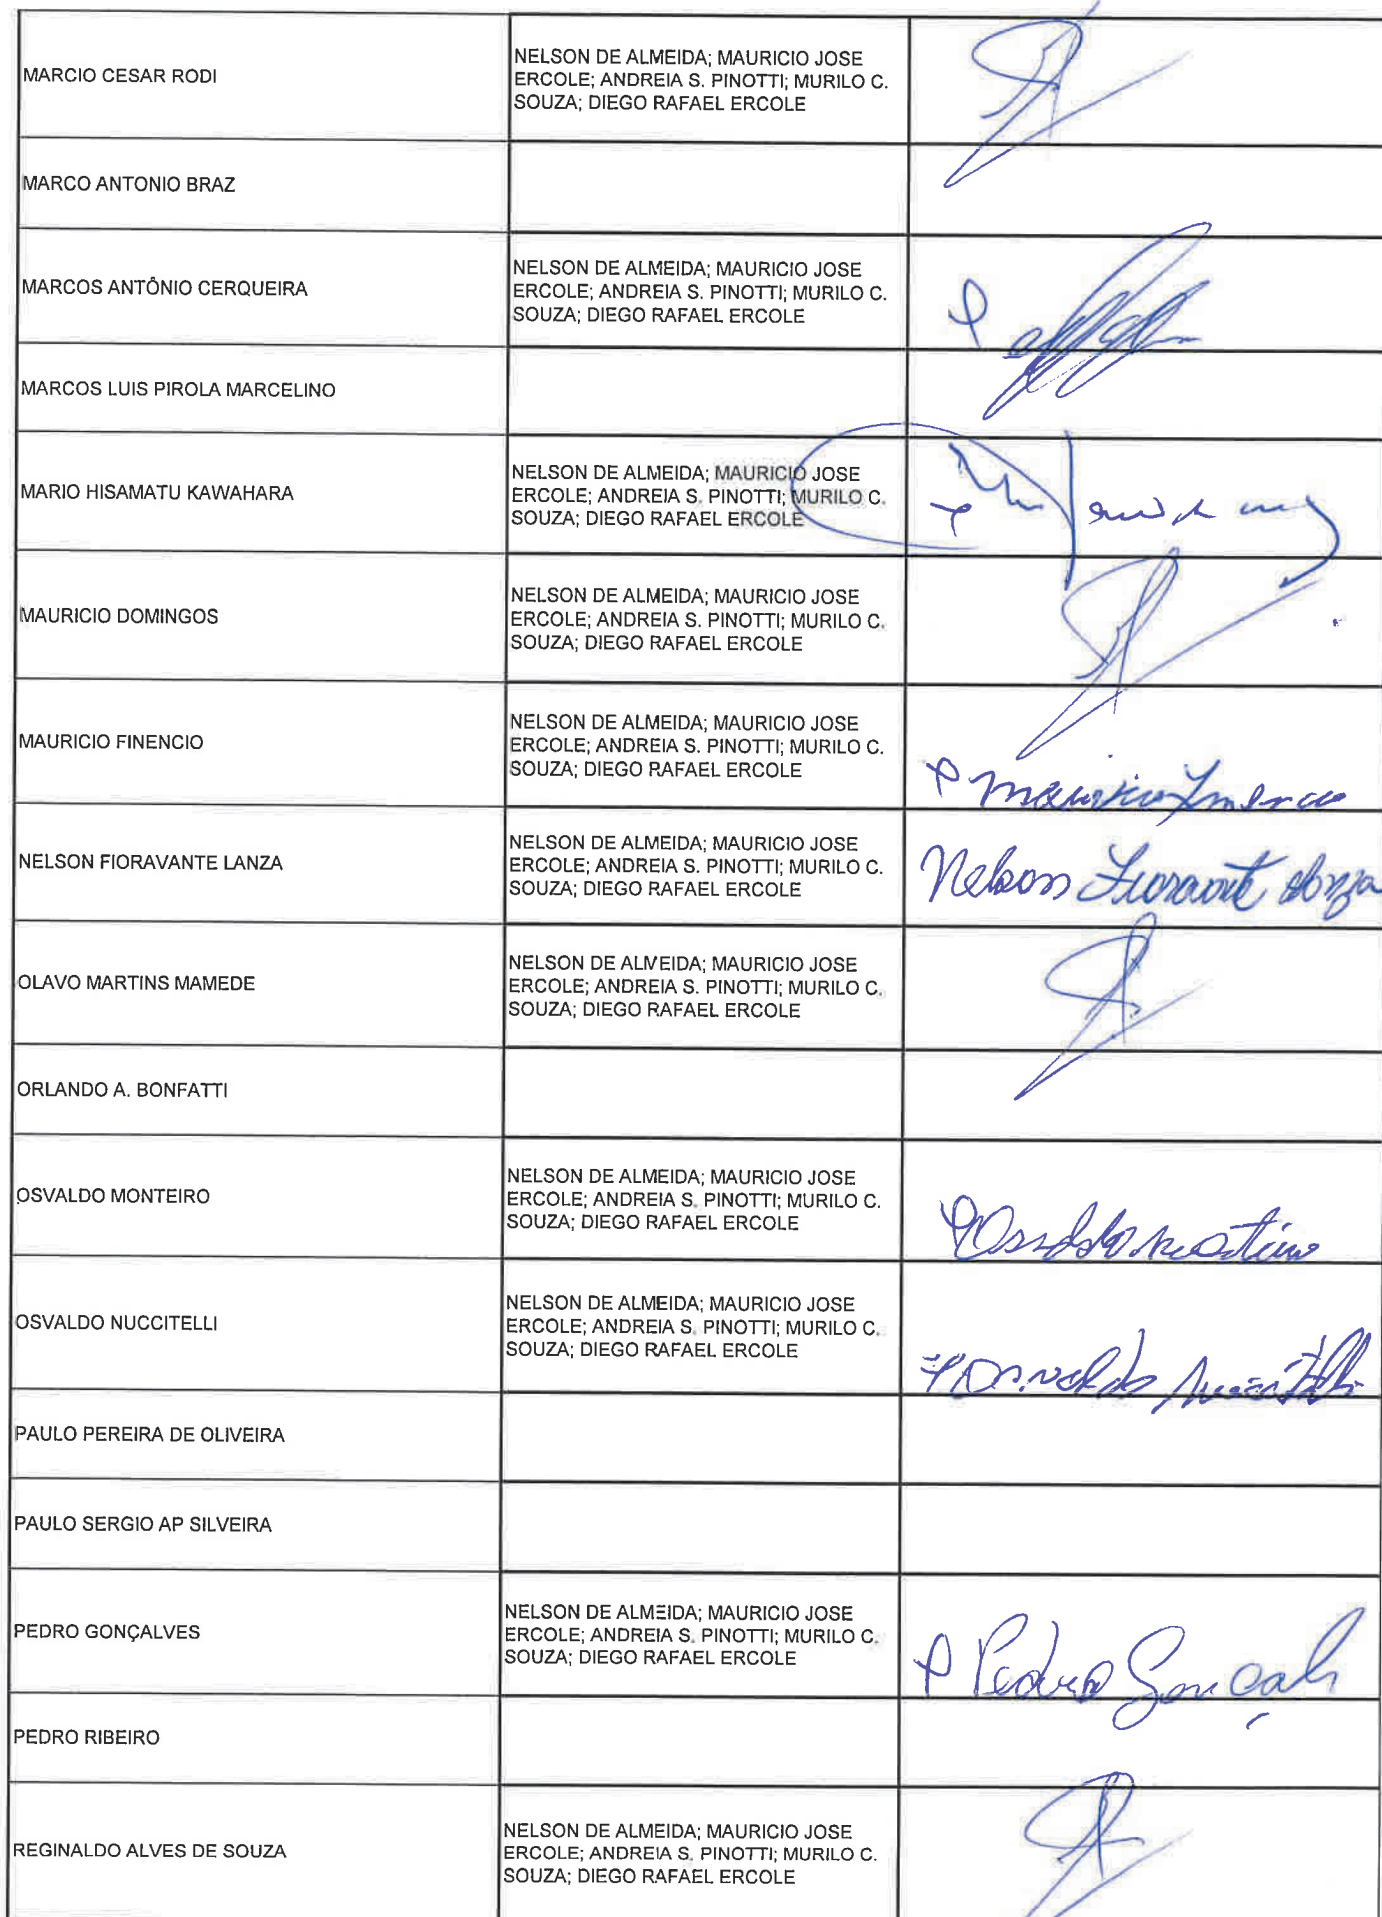 MARCIO CESAR RODI
NELSON DE ALMEIDA; MAURICIO JOSE
ERCOLE; ANDREIA S. PINOTTI; MURILO C.
SOUZA; DIEGO RAFAEL ERCOLE
MARCO ANTONIO BRAZ
MARCOS ANTÔNIO CERQUEIRA
NELSON DE ALMEIDA; MAURICIO JOSE
ERCOLE; ANDREIA S. PINOTTI; MURILO C.
SOUZA; DIEGO RAFAEL ERCOLE
MARCOS LUIS PIROLA MARCELINO
MARIO HISAMATU KAWAHARA
NELSON DE ALMEIDA; MAURICIO JOSE
ERCOLE; ANDREIA S. PINOTTI; MURILO C.
SOUZA; DIEGO RAFAEL ERCOLE
MAURICIO DOMINGOS
NELSON DE ALMEIDA; MAURICIO JOSE
ERCOLE; ANDREIA S. PINOTTI; MURILO C.
SOUZA; DIEGO RAFAEL ERCOLE
MAURICIO FINENCIO
NELSON DE ALMEIDA; MAURICIO JOSE
ERCOLE; ANDREIA S. PINOTTI; MURILO C.
SOUZA; DIEGO RAFAEL ERCOLE
Mauricio
NELSON FIORAVANTE LANZA
NELSON DE ALMEIDA; MAURICIO JOSE
ERCOLE; ANDREIA S. PINOTTI; MURILO C.
SOUZA; DIEGO RAFAEL ERCOLE
Nelson
OLAVO MARTINS MAMEDE
NELSON DE ALMEIDA; MAURICIO JOSE
ERCOLE; ANDREIA S. PINOTTI; MURILO C.
SOUZA; DIEGO RAFAEL ERCOLE
ORLANDO A. BONFATTI
OSVALDO MONTEIRO
NELSON DE ALMEIDA; MAURICIO JOSE
ERCOLE; ANDREIA S. PINOTTI; MURILO C.
SOUZA; DIEGO RAFAEL ERCOLE
OSVALDO NUCCITELLI
NELSON DE ALMEIDA; MAURICIO JOSE
ERCOLE; ANDREIA S. PINOTTI; MURILO C.
SOUZA; DIEGO RAFAEL ERCOLE
PAULO PEREIRA DE OLIVEIRA
PAULO SERGIO AP SILVEIRA
PEDRO GONÇALVES
NELSON DE ALMEIDA; MAURICIO JOSE
ERCOLE; ANDREIA S. PINOTTI; MURILO C.
SOUZA; DIEGO RAFAEL ERCOLE
Pedro
PEDRO RIBEIRO
REGINALDO ALVES DE SOUZA
NELSON DE ALMEIDA; MAURICIO JOSE
ERCOLE; ANDREIA S. PINOTTI; MURILO C.
SOUZA; DIEGO RAFAEL ERCOLE